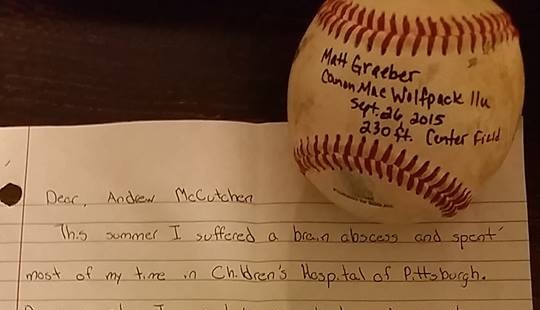 Matt Graeber
Canon Mac Wolfpack 11u
Sept. 26 2015
230 ft. Center Field
Dear, Andrew McCutchen
This summer I suffered a brain abscess and spent
most of my time in Children's Hospital of Pittsburgh.